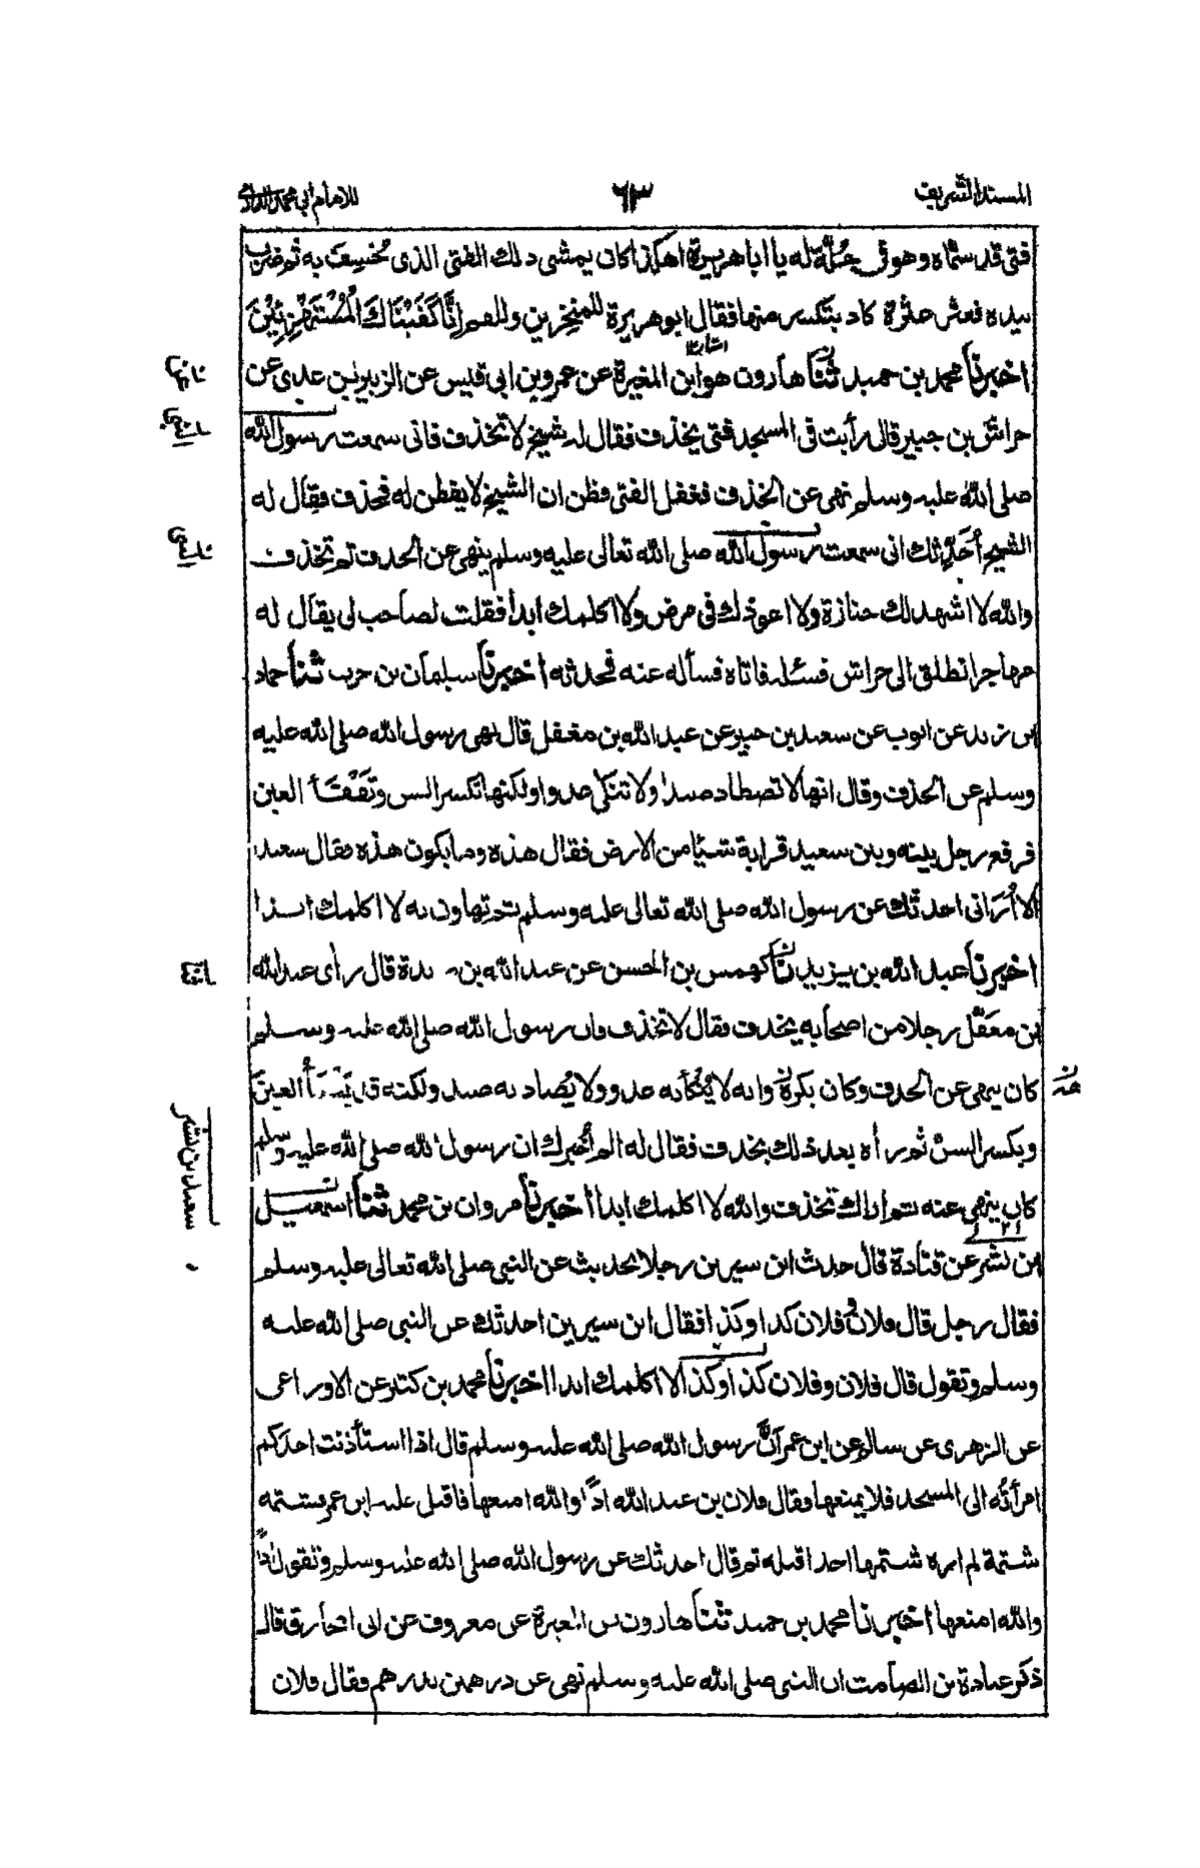 المسند الشريف
٦٣
للامام ابى محمد الدارمى
فتى قد سمّاه وهو فى حُلّةٍ له يا ابا هريرة اهكذا كان يمشى ذلك الفتى الذى خُسِفَ به ثم ضرب
بيده فعثر عثرة كاد يتكسر منها فقال ابو هريرة للمنخرين وللفم اِنَّا كَفَيْنَاكَ الْمُسْتَهْزِئِيْنَ
اخبرنا محمد بن حميد ثنا هارون هو ابن المغيرة عن عمرو بن ابى قيس عن الزبير بن عدى عن
خراش بن جبير قال رأيت فى المسجد فتى يخذف فقال له شيخ لا تخذف فانى سمعت رسول الله
صلى الله عليه وسلم نهى عن الخذف فغفل الفتى وظن ان الشيخ لا يفطن له فخذف فقال له
الشيخ أُحَدِّثك انى سمعت رسول الله صلى الله تعالى عليه وسلم ينهى عن الخذف ثم تخذف
والله لا اشهد لك جنازة ولا اعودك فى مرض ولا اكلمك ابدا فقلت لصاحب لى يقال له
مهاجر انطلق الى خراش فسئله فاتاه فسأله عنه فحدثه اخبرنا سليمان بن حرب ثنا حماد
بن زيد عن ايوب عن سعيد بن جبير عن عبد الله بن مغفل قال نهى رسول الله صلى الله عليه
وسلم عن الخذف وقال انها لا تصطاد صيدا ولا تنكى عدوا ولكنها تكسر السن وتَفْقَأ العين
فرفع رجل بينه وبين سعيد قرابة شيئا من الارض فقال هذه وما يكون هذه فقال سعيد
الا اُرَانى احدثك عن رسول الله صلى الله تعالى عليه وسلم ثم تهاون به لا اكلمك ابدا
اخبرنا عبد الله بن يزيد ثنا كهمس بن الحسن عن عبد الله بن بريدة قال رأى عبد الله
بن مغَفّل رجلا من اصحابه يخذف فقال لا تخذف فان رسول الله صلى الله عليه وسلم
كان ينهى عن الخذف وكان يكرهُ وانه لا يُنْكَأ به عدو ولا يُصاد به صيد ولكنه قد يَفْقَأُ العينَ
ويكسر السنّ ثم رأه بعد ذلك يخذف فقال له الم اُخبرك ان رسول الله صلى الله عليه وسلم
كان ينهى عنه ثم اراك تخذف والله لا اكلمك ابدا اخبرنا مروان بن محمد ثنا اسمعيل
بن بشر عن قتادة قال حدث ابن سيرين رجلا بحديث عن النبى صلى الله تعالى عليه وسلم
فقال رجل قال فلان وفلان كذا وكذا فقال ابن سيرين احدثك عن النبى صلى الله عليه
وسلم وتقول قال فلان وفلان كذا وكذا لا اكلمك ابدا اخبرنا محمد بن كثير عن الاوزاعى
عن الزهرى عن سالم عن ابن عمر اَنَّ رسول الله صلى الله عليه وسلم قال اذا استأذنت احدَكم
امرأتُه الى المسجد فلا يمنعها فقال فلان بن عبد الله اذًا والله امنعها فاقبل عليه ابن عمر فشتمه
شتمة لم اره شتمها احدا قبله ثم قال احدثك عن رسول الله صلى الله عليه وسلم وتقول اذًا
والله امنعها اخبرنا محمد بن حميد ثنا هارون بن المغيرة عن معروف عن ابى المخارق قال
ذكر عبادة بن الصامت ان النبى صلى الله عليه وسلم نهى عن درهمين بدرهم فقال فلان
سعيد بن بشر